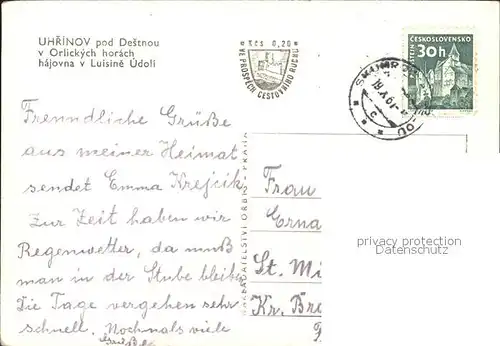 UHŘÍNOV pod Deštnou
v Orlických horách
hájovna v Luisině Údolí
Kčs 0,20
VE PROSPĚCH CESTOVNÍHO RUCHU
ČESKOSLOVENSKO
30h
Freundliche Grüße
aus meiner Heimat
sendet Emma Krejcik
Zur Zeit haben wir
Regenwetter, da muß
man in der Stube bleiben
Die Tage vergehen sehr
schnell. Nochmals viele
Grüße
NAKLADATELSTVÍ ORBIS - PRAHA
Frau
Erna
St. Mi
Kr. Bre
privacy protection
Datenschutz